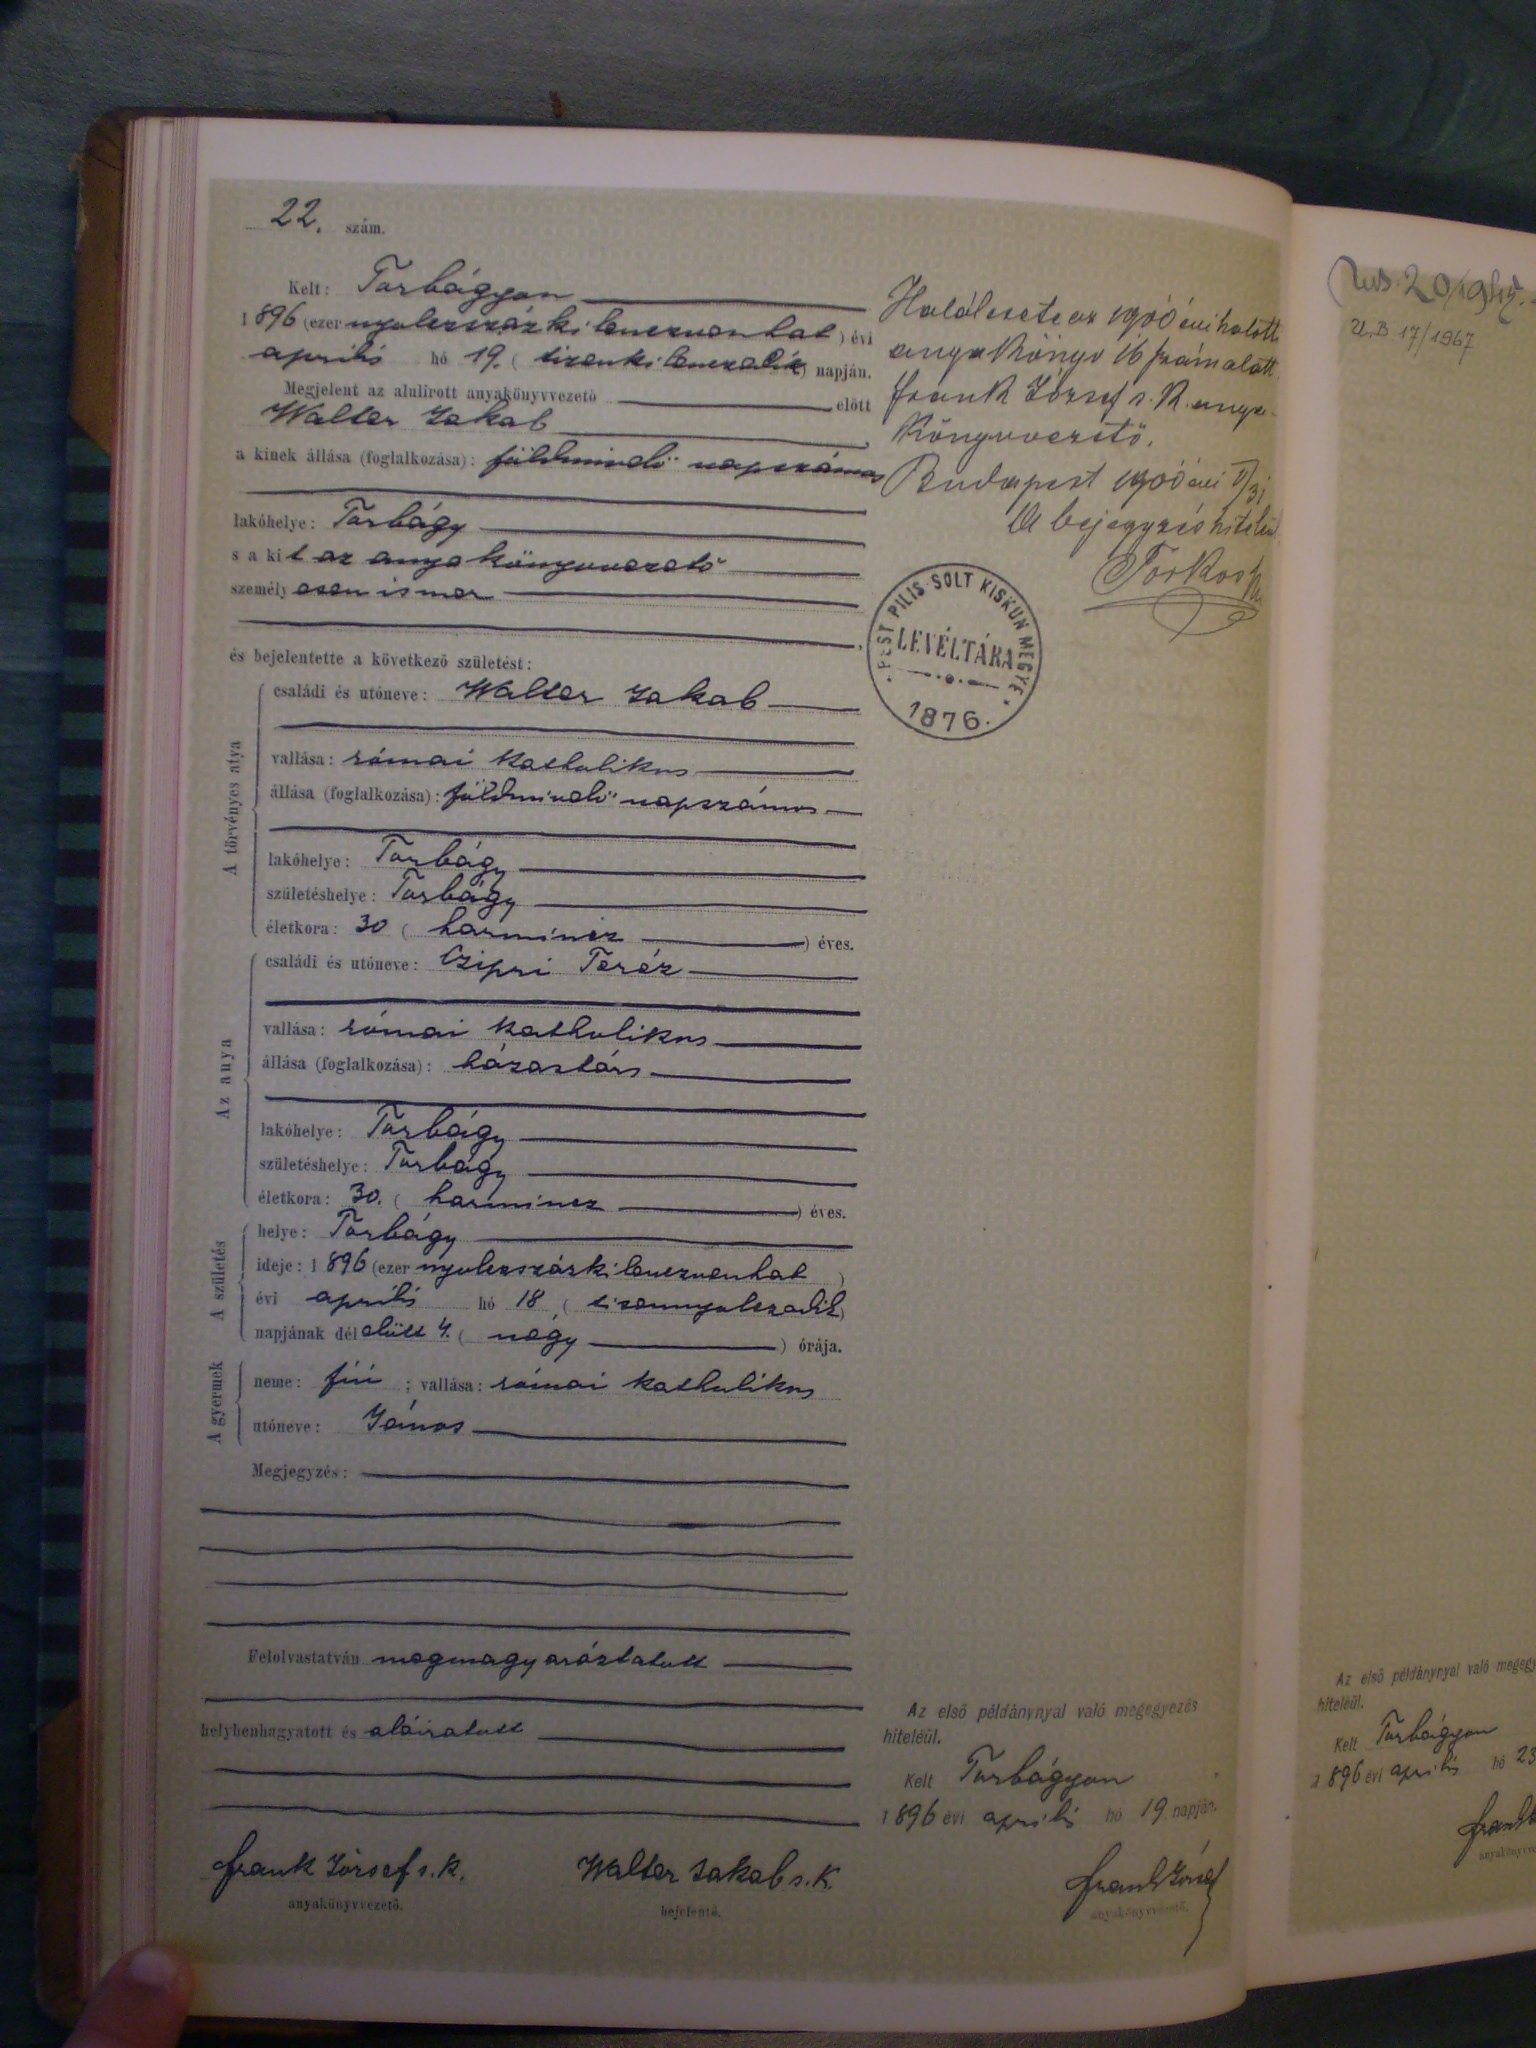 22. szám.
Kelt: Torbágyon
1896 (ezer nyolczszázkilenczvenhat) évi
április hó 19. (tizenkilenczedik) napján.
Megjelent az alulirott anyakönyvvezető előtt
Walter Jakab
a kinek állása (foglalkozása): földmivelő napszámos
lakóhelye: Torbágy
s a kit az anyakönyvvezető
személyesen ismer
és bejelentette a következő születést:
A törvényes atya
családi és utóneve: Walter Jakab
vallása: római katholikus
állása (foglalkozása): földmivelő napszámos
lakóhelye: Torbágy
születéshelye: Torbágy
életkora: 30 (harmincz) éves.
Az anya
családi és utóneve: Czipri Teréz
vallása: római katholikus
állása (foglalkozása): házastárs
lakóhelye: Torbágy
születéshelye: Torbágy
életkora: 30. (harmincz) éves.
A születés
helye: Torbágy
ideje: 1896 (ezer nyolczszázkilenczvenhat)
évi április hó 18 (tizennyolczadik)
napjának délelőtt 4. (négy) órája.
A gyermek
neme: fiú; vallása: római katholikus
utóneve: János
Megjegyzés:
Felolvastatván megmagyaráztatott
helybenhagyatott és aláiratott
Frank József s. k.
anyakönyvvezető.
Walter Jakab s. k.
bejelentő.
Halálesete az 1900 évi halotti
anyakönyv 16 szám alatt.
Frank József s. k. anya-
könyvvezető.
Budapest 1900 évi
A bejegyzés hiteléül
PEST PILIS SOLT KISKUN MEGYE
LEVÉLTÁRA
1876.
Az első példánynyal való megegyezés
hiteléül.
Kelt Torbágyon
1896 évi április hó 19 napján.
Frank József
anyakönyvvezető.
U.B 17/1967
Az első példánynyal való
hiteléül.
Kelt Torbágyon
1896 évi április hó 23